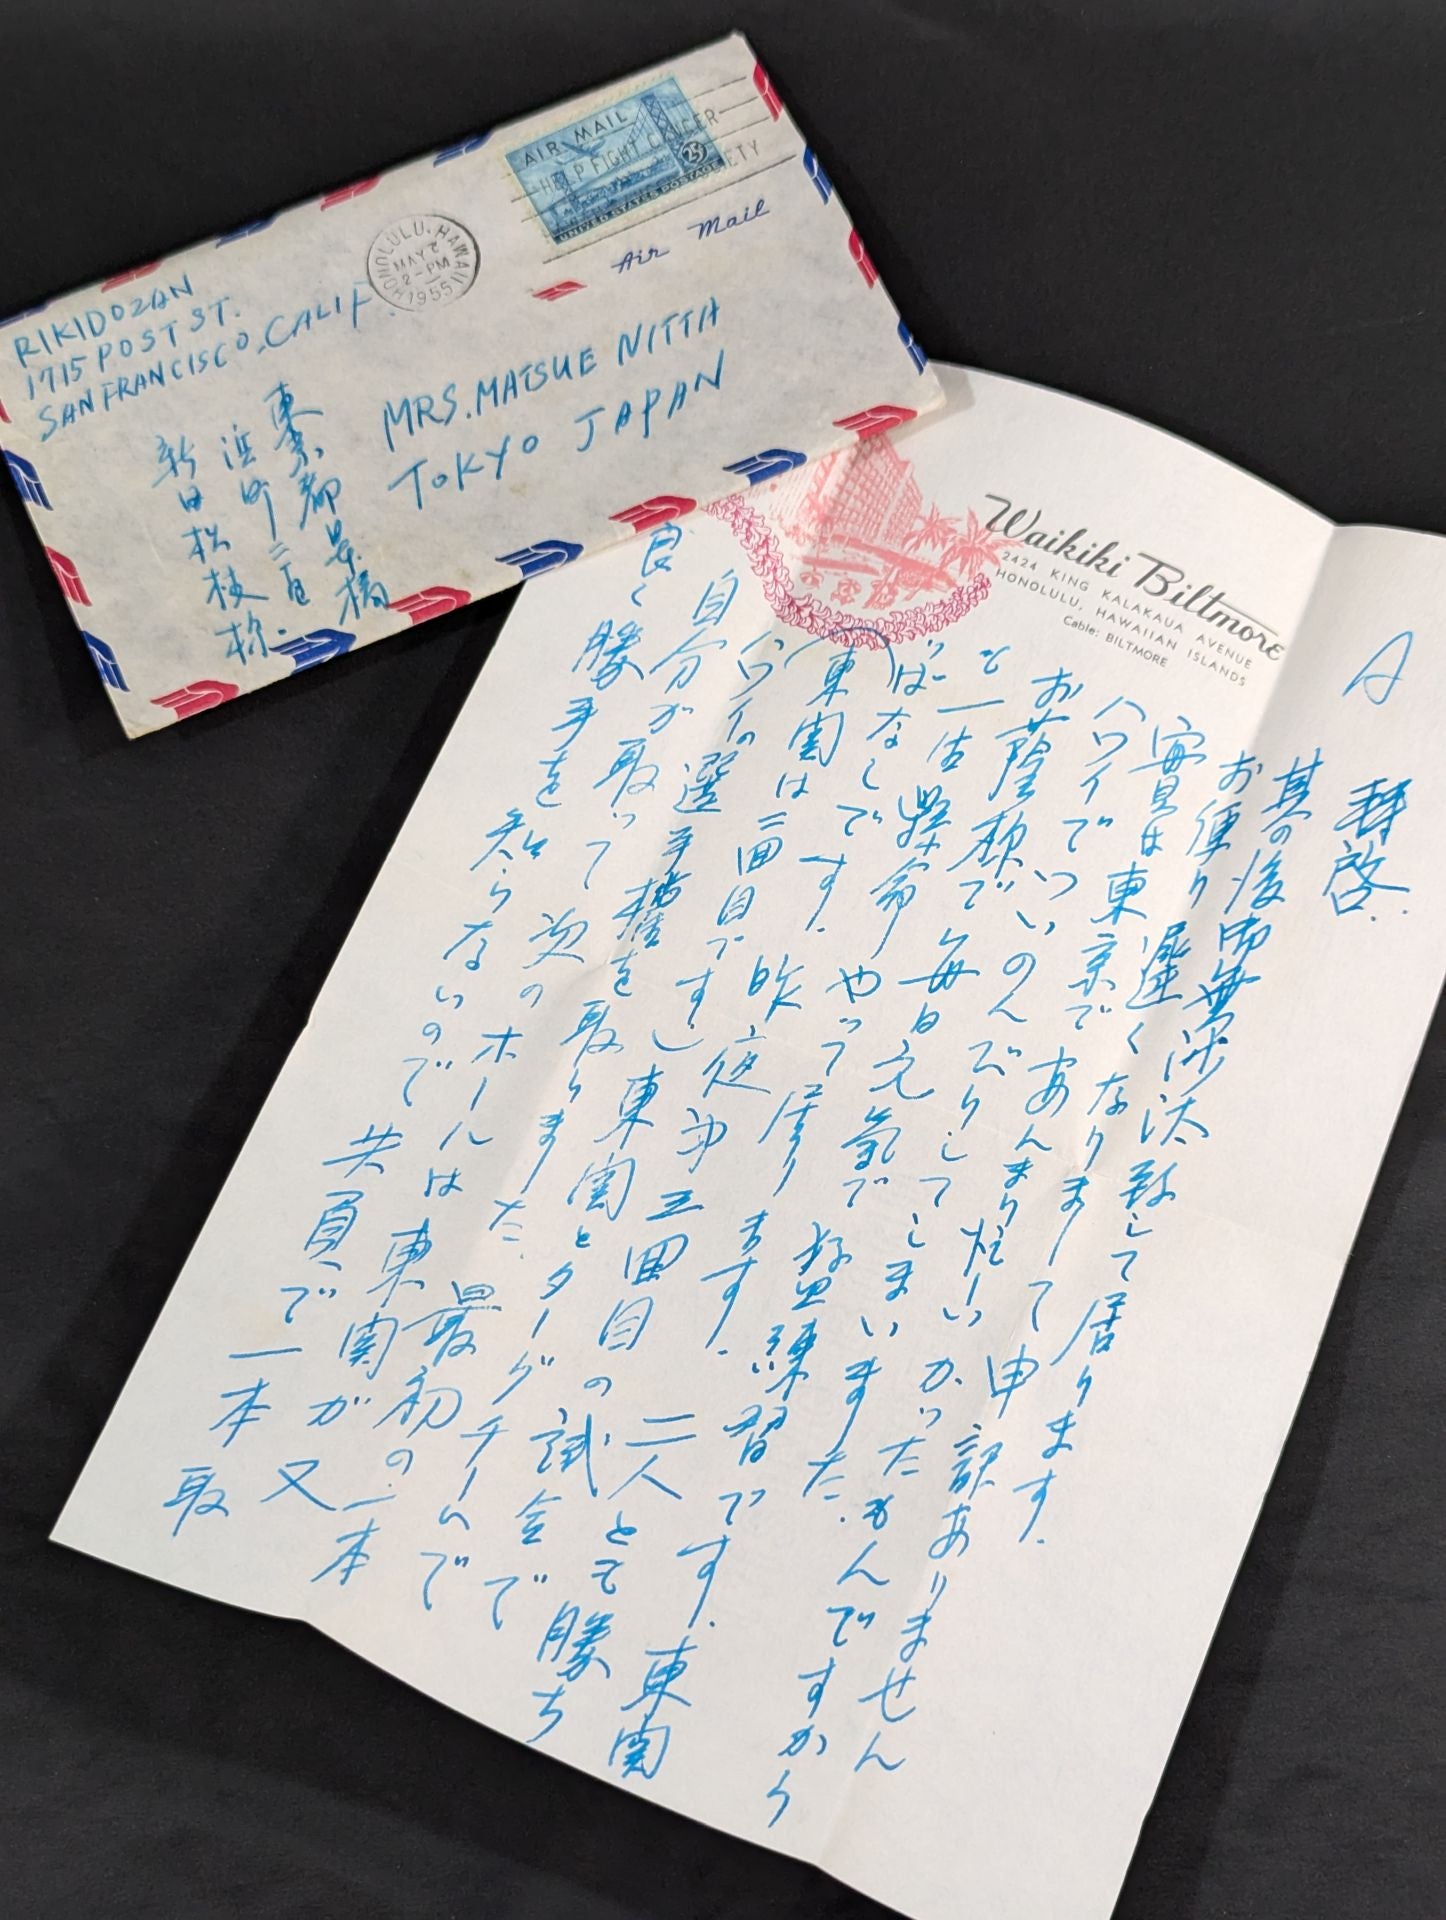 AIR MAIL
HELP FIGHT CANCER
25¢
UNITED STATES POSTAGE
Air Mail
HONOLULU, HAWAII
MAY
2-PM
1955
RIKIDOZAN
1715 POST ST.
SAN FRANCISCO. CALIF.
MRS. MATSUE NITTA
TOKYO JAPAN
東京都京橋
浜町二の
新田松枝様
Waikiki Biltmore
2424 KING KALAKAUA AVENUE
HONOLULU, HAWAIIAN ISLANDS
Cable: BILTMORE
A
拝啓.
其の後御無沙汰致して居ります.
お便り遅くなりまして申訳ありません
実は東京であんまり忙しかったもんですから
ハワイでついのんびりしてしまいました.
お蔭様で毎日元気で 練習です. 東関
と一生懸命やって居ります. 二人とも勝ち
っぱなしです. 昨夜 五回目の試合で
(東関は二回目ですし東関とターグチームで
ハワイの選手権を取りました. 最初の一本
自分が取って 次のホールは東関が又
良く勝手を知らないので 共 負で一本取